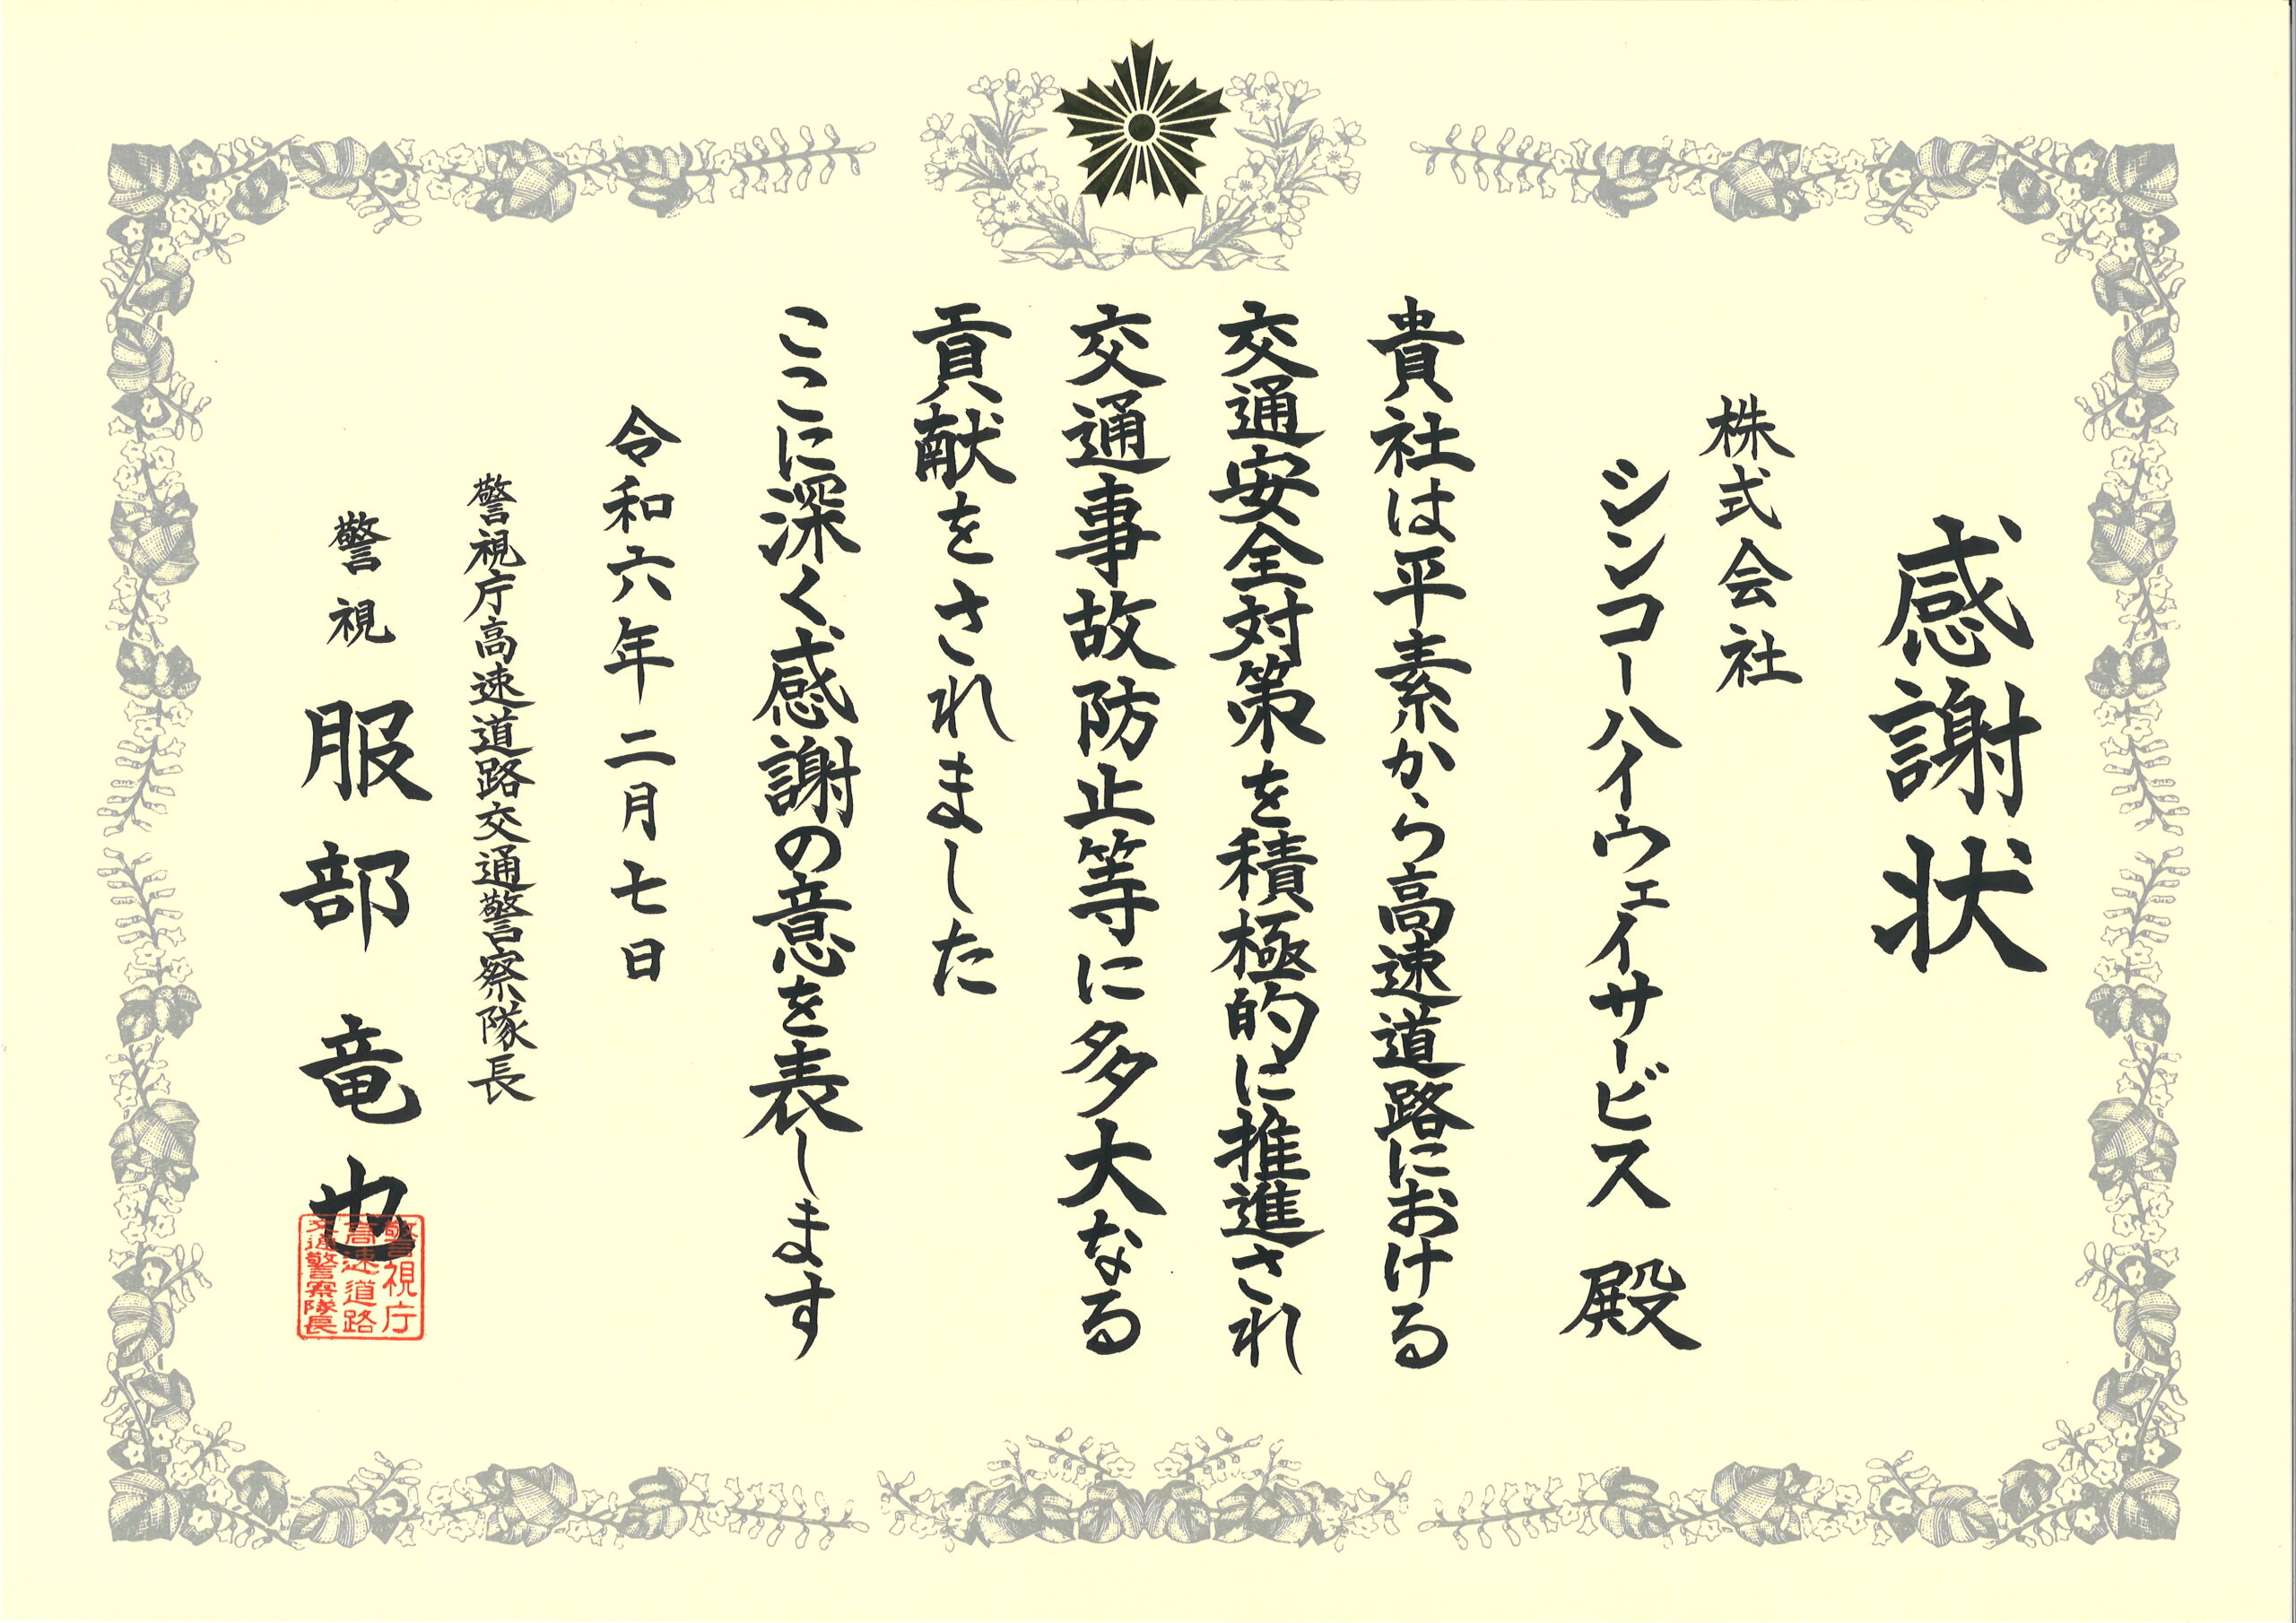 感謝状
株式会社
シンコーハイウェイサービス 殿
貴社は平素から高速道路における
交通安全対策を積極的に推進され
交通事故防止等に多大なる
貢献をされました
ここに深く感謝の意を表します
令和六年二月七日
警視庁高速道路交通警察隊長
警視 服部竜也
警視庁
高速道路
交通警察隊長